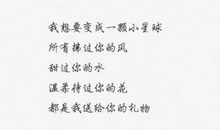 我想要变成一颗小星球
所有拂过你的风
甜过你的水
温柔待过你的花
都是我送给你的礼物